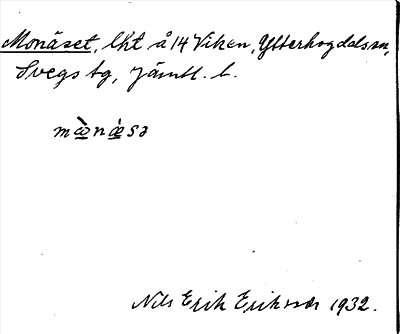 Monäset, lht å 14 Viken, Ytterhogdals sn,
Svegs tg, Jämtl. l.
mæ̀næ̀sə
Nils Erik Eriksson 1932.